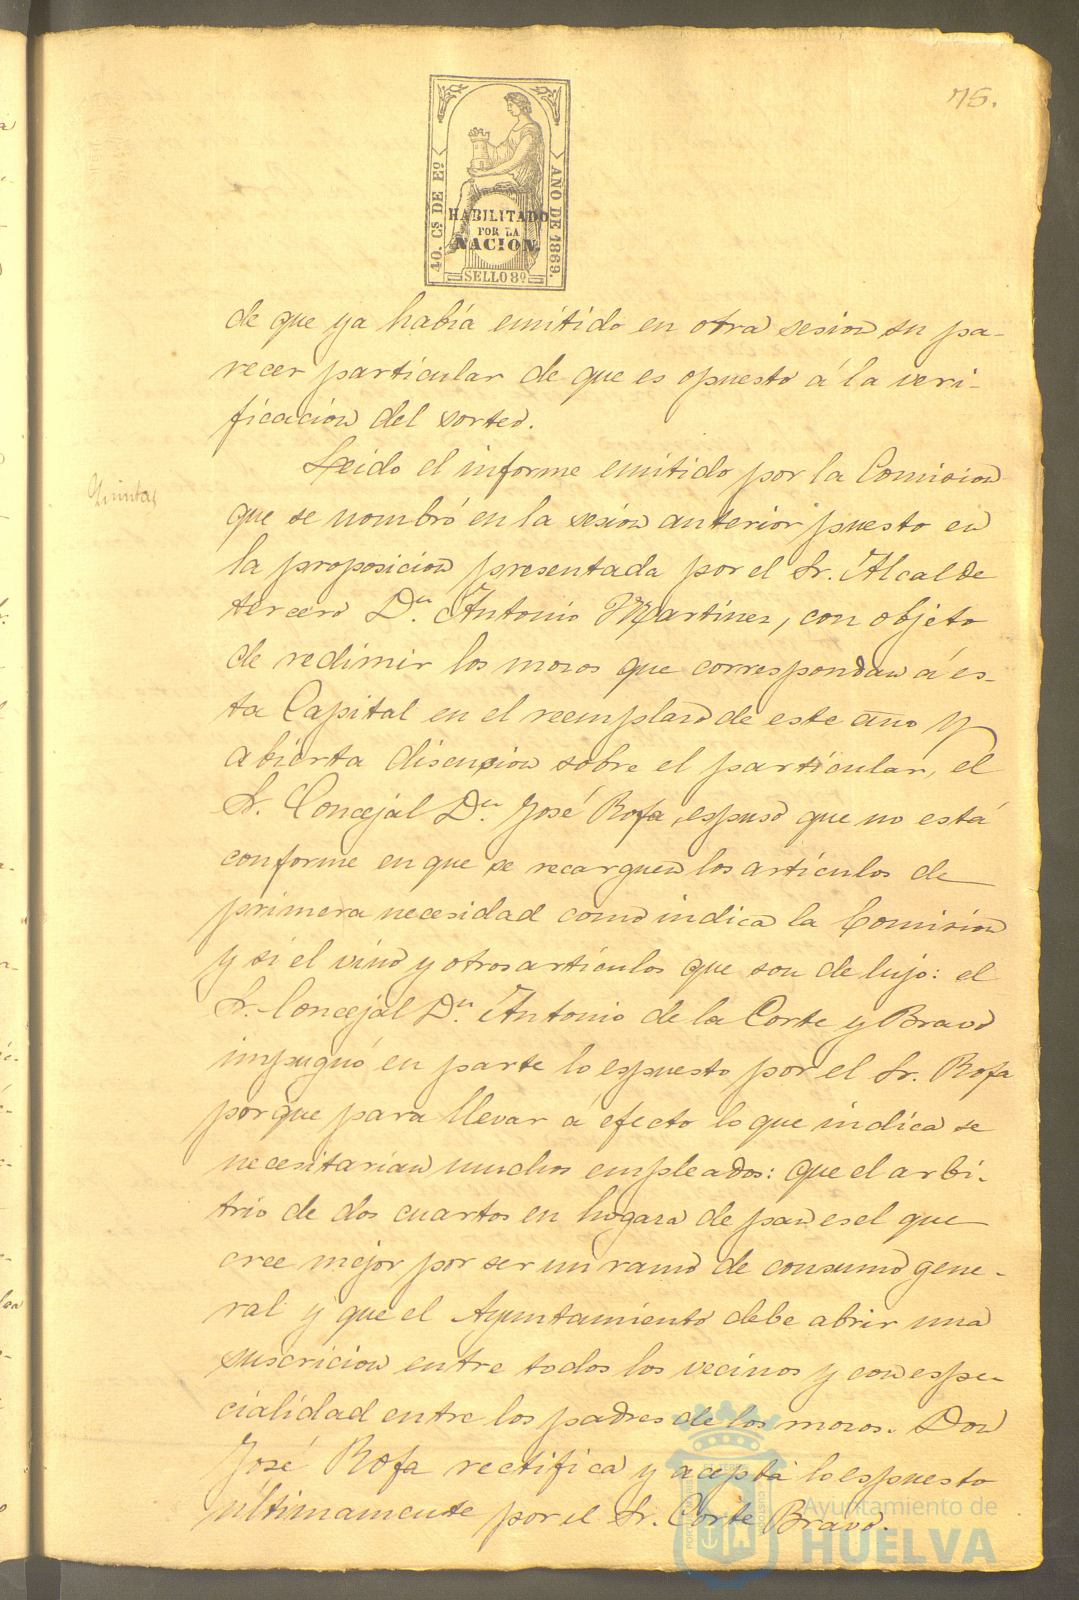 75.
40. Cs DE Eo.
AÑO DE 1869.
HABILITADO
POR LA
NACION.
SELLO 8º
de que ya había emitido en otra sesion su pa-
recer particular de que es opuesto á la veri-
ficacion del sorteo.
Quintas
Leido el informe emitido por la Comision
que se nombró en la sesion anterior puesto en
la proposicion presentada por el Sr. Alcalde
tercero Dn. Antonio Martinez, con objeto
de redimir los mozos que correspondan á es-
ta Capital en el reemplazo de este año y
abierta discusion sobre el particular, el
Sr. Concejal Dn. José Rofa, espuso que no está
conforme en que se recarguen los artículos de
primera necesidad como indica la Comision
y si el vino y otros artículos que son de lujo: el
Sr. Concejal Dn. Antonio de la Corte y Bravo
impugnó en parte lo espuesto por el Sr. Rofa
porque para llevar á efecto lo que indica se
necesitarian muchos empleados: que el arbi-
trio de dos cuartos en hogaza de pan es el que
cree mejor por ser un ramo de consumo gene-
ral y que el Ayuntamiento debe abrir una
suscricion entre todos los vecinos y con espe-
cialidad entre los padres de los mozos. Don
José Rofa rectifica y acepta lo espuesto
últimamente por el Sr. Corte Bravo.
Ayuntamiento de
HUELVA